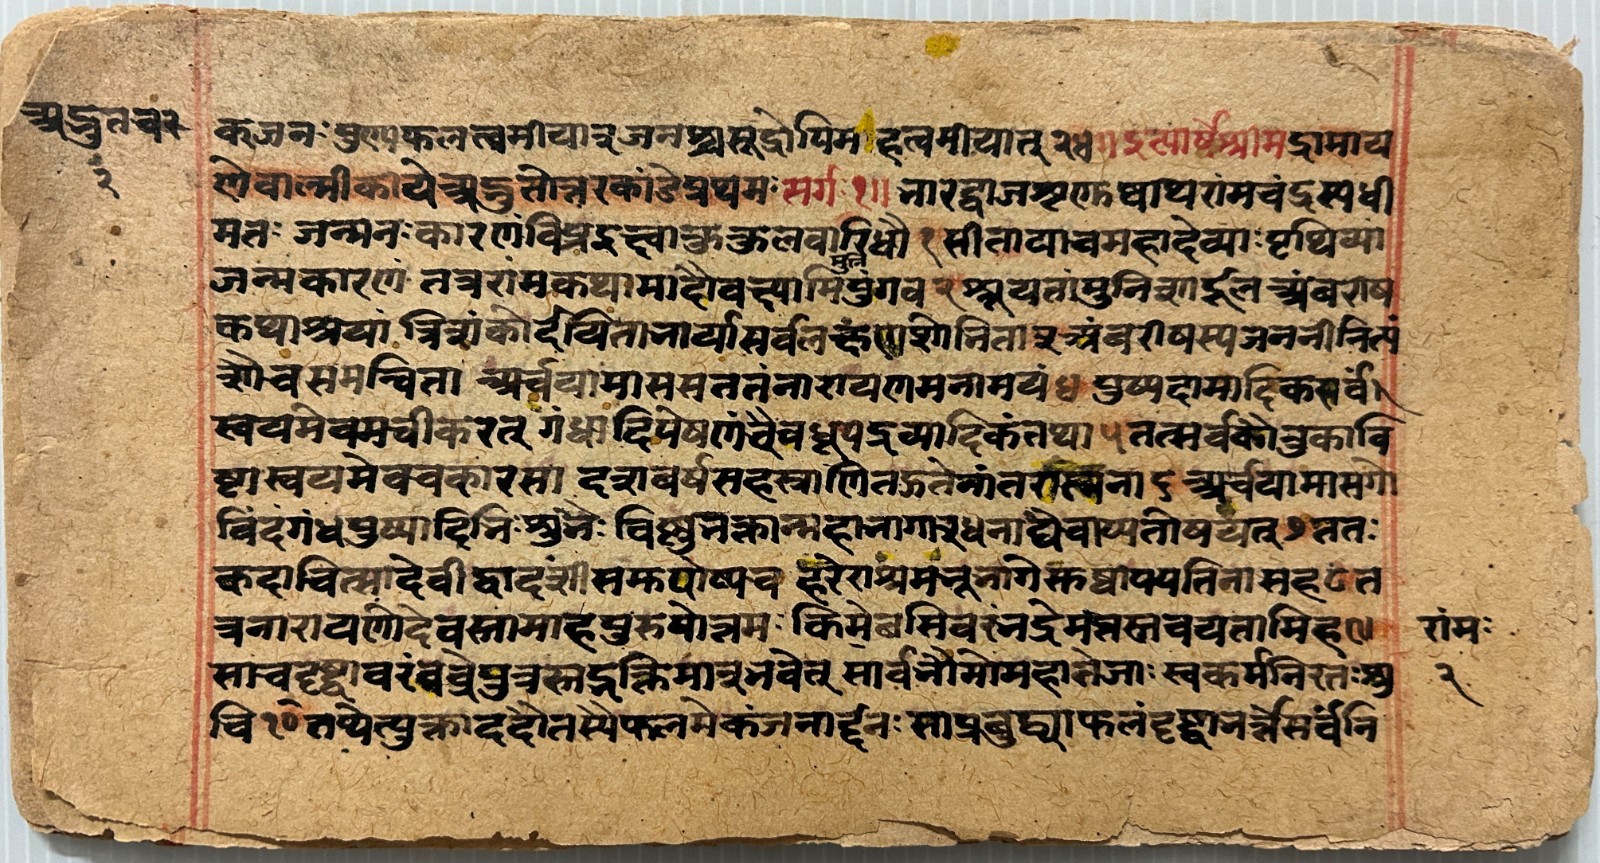 अद्भुतचर
२
कजनः पुण्यफलत्वमीयात् जनश्च सूद्रोपिमहत्वमीयात् २४॥ इत्यार्षेश्रीमद्रामाय
णेवाल्मीकीयेअद्भुतोत्तरकांडेप्रथमः सर्गः १॥ भारद्वाजशृणुष्वाथरामचंद्रस्यधी
मतः जन्मनःकारणंविप्रइक्ष्वाकुकुलवारिधौ १ सीतायाश्चमहादेव्याः पृथिव्यां
जन्मकारणं तत्ररामकथामादौवक्ष्यामिमुनिपुंगव २ श्रूयतांमुनिशार्दूल अंबरीष
कथाश्रयां त्रिशंकोर्दयिताभार्यासर्वलक्षणशोभिता ३ अंबरीषस्यजननीनित्यं
शौचसमन्विता अर्चयामाससततंनारायणमनामयं ४ पुष्पदामादिकंसर्वं
स्वयमेवमचीकरत् गंधादिपेषणंचैवधूपद्रव्यादिकंतथा ५ तत्सर्वंकौतुकावि
ष्टास्वयमेवचकारसा दशवर्षसहस्राणितत्तेनांतरात्मना ६ अर्चयामासगो
विंदंगंधपुष्पादिभिःशुभैः विष्णुभक्तान्महाभागान्धनाद्यैश्चाप्यतोषयत् ७ ततः
कदाचित्सादेवीद्वादशीसमपोष्यच हरेराश्रमभूभागेसुष्वापपतिनासह ८ त
त्रनारायणोदेवस्तामाहपुरुषोत्तमः किमिच्छसिवरंभद्रेमत्तस्त्ववयतामिह ९
रामः
साचदृष्ट्वावरंवव्रेपुत्रस्त्वद्भक्तिमान्भवेत् सार्वभौमोमहातेजाः स्वकर्मनिरतःशु
२
चि १० तथेत्युक्त्वाददौतस्यैफलमेकंजनार्द्दनः साप्रबुध्याफलंदृष्ट्वाभर्त्रेसर्वंनि